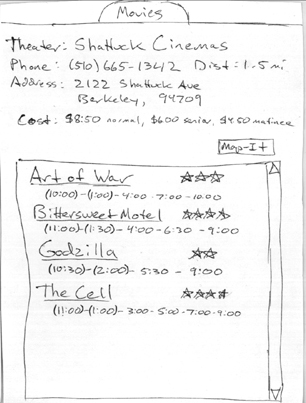 Movies
Theater: Shattuck Cinemas
Phone: (510) 665-1342 Dist: 1.5 mi
Address: 2122 Shattuck Ave
Berkeley, 94709
Cost: $8.50 normal, $6.00 senior, $4.50 matinee
Map-It
Art of War
(10:00)-(1:00)-4:00-7:00-10:00
Bittersweet Motel
(11:00)-(1:30)-4:00-6:30-9:00
Godzilla
(10:30)-(2:00)-5:30-9:00
The Cell
(11:00)-(1:00)-3:00-5:00-7:00-9:00